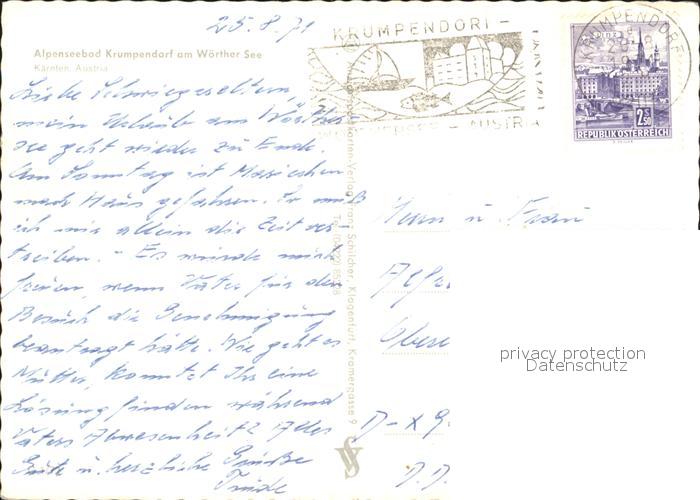 25.8.71
KRUMPENDORF
Alpenseebad Krumpendorf am Wörther See
Kärnten, Austria
Liebe Schwiegereltern,
mein Urlaub am Wörther-
see geht wieder zu Ende.
Am Sonntag ist Marichen
nach Haus gefahren. So muß
ich mir allein die Zeit ver-
treiben. - Es würde mich
freuen, wenn Vater für den
Besuch die Genehmigung
beantragt hätte. Wie geht es
Mutter, konntet Ihr eine
Lösung finden während
Vaters Abwesenheit? Alles
Gute u. herzliche Grüße
KRUMPENDORF -
- AUSTRIA
LINZ
2.50
REPUBLIK ÖSTERREICH
Franz Schilcher, Klagenfurt, Kramergasse 9
Herrn u. Frau
D-X 9
D.D.
privacy protection
Datenschutz